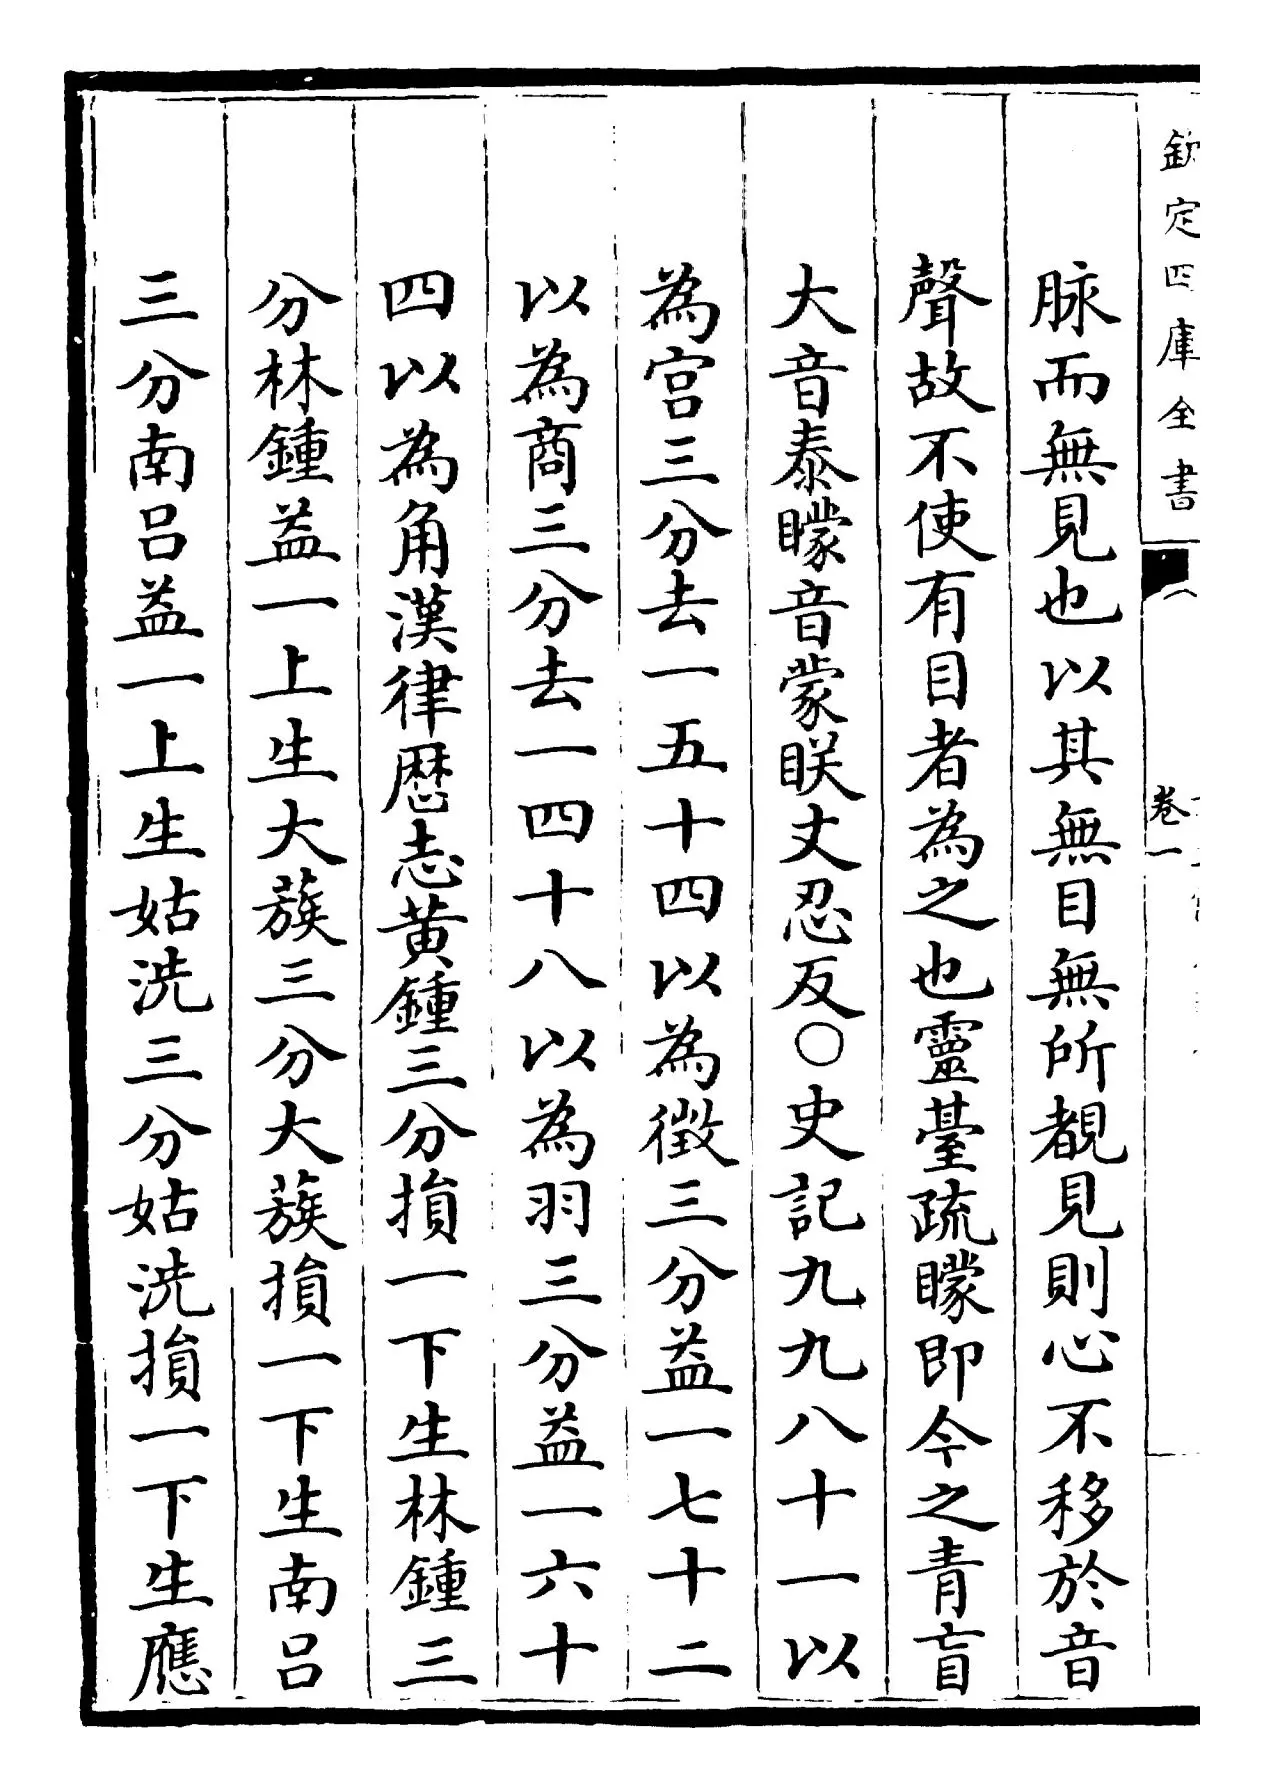 欽定四庫全書
卷一
脉而無見也以其無目無所覩見則心不移於音
聲故不使有目者為之也靈臺疏矇即今之青盲
大音泰矇音蒙眹丈忍反○史記九九八十一以
為宮三分去一五十四以為徵三分益一七十二
以為商三分去一四十八以為羽三分益一六十
四以為角漢律厯志黃鍾三分損一下生林鍾三
分林鍾益一上生大蔟三分大蔟損一下生南呂
三分南呂益一上生姑洗三分姑洗損一下生應